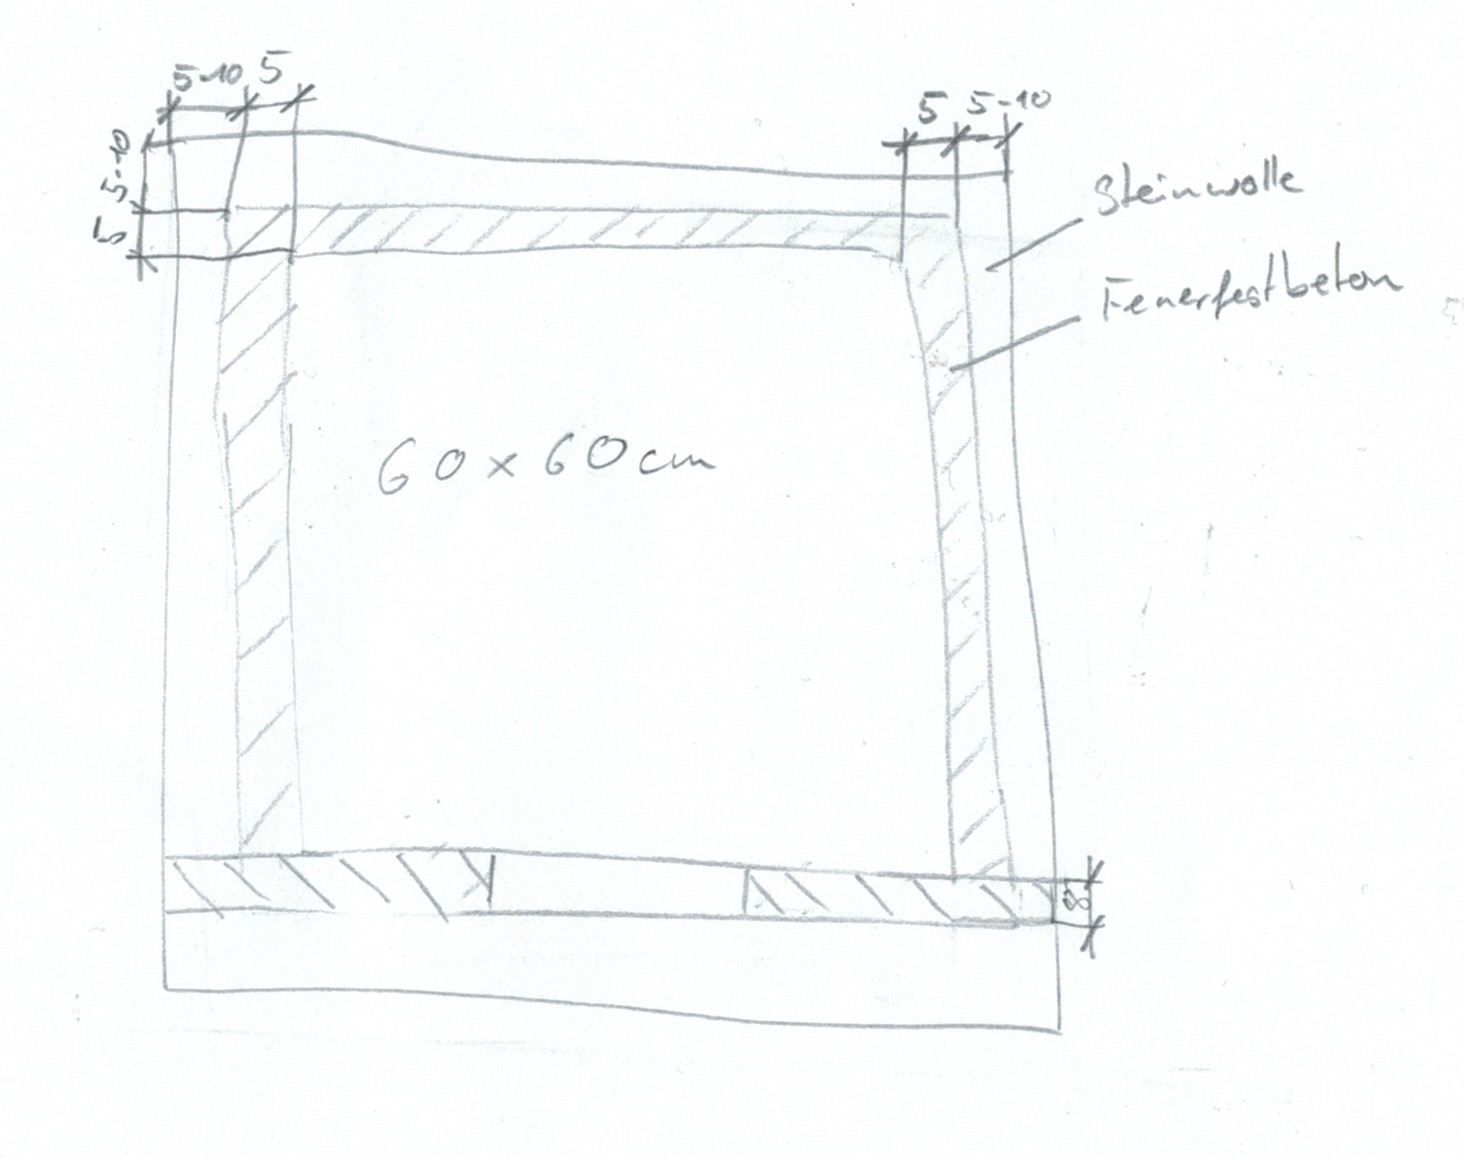 5-10 5
5 5-10
5-10
5
Steinwolle
Feuerfestbeton
60 x 60 cm
8